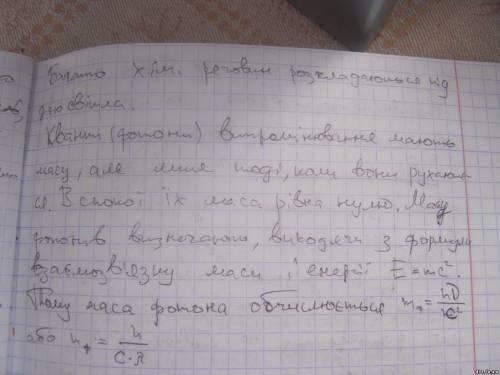 Багато хім. речовин розкладаються під
дією світла.
Кванти (фотони) випромінювання мають
масу, але лише тоді, коли вони рухають-
ся. В спокої їх маса рівна нулю. Масу
фотонів визначають, виходячи з формули
взаємозв'язку маси і енергії E = mc².
Тому маса фотона обчислюється mф = hν/c²
або mф = h/c·λ